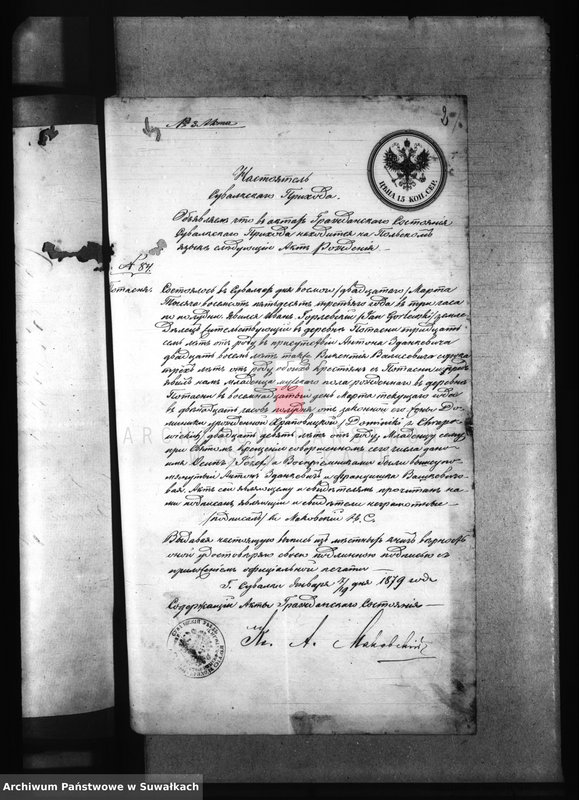 № 3. Акта
2
ЦѢНА 15 КОП. СЕР.
Настоятель
Сувалкскаго Прихода.
Объявляю что въ актахъ Гражданскаго Состоянія
Сувалкскаго Прихода находится на Польскомъ
языкѣ слѣдующій Актъ Рожденія
№ 84.
Потасня. Состоялось въ Сувалкахъ дня восьмаго /двадцатаго/ Марта
Тысяча восемсотъ пятьдесятъ третяго года въ три часа
по полудни. Явился Иванъ Горлевскій /Jan Gorlewski/
жительствующій въ деревнѣ Потасни тридцать
семь лѣтъ отъ роду въ присутствіи Антона Зданкевича
двадцать восемь лѣтъ
лѣтъ отъ роду обоихъ крестянъ съ Потасни и предъ-
явилъ намъ младенца мужескаго пола рожденнаго въ деревнѣ
Потасни въ восемнадцатый день Марта текущаго года
въ двѣнадцать часовъ полудня отъ законной его жены До-
миники урожденной /Dominiki z
двадцать девять лѣтъ отъ роду. Младенцу сему
при Святомъ крещеніи совершенномъ сего числа дано
имя а Воспреемниками были вышеупо-
мянутый Антонъ Зданкевичъ и Францишка
Актъ сей являющему и свидѣтелямъ прочитанъ на-
ми подписанъ, являющій и свидѣтели неграмотные
/подписалъ/ К. Маковскій
Выдавая настоящую выпись изъ
удостовѣряю своею подлинною подписью съ
приложеніемъ официальной печати
Г. Сувалки Января 7/19 дня 1879 года
Содержащій Акты Гражданскаго Состоянія
Кс. А. Маковскій
ARCH
Archiwum Państwowe w Suwałkach